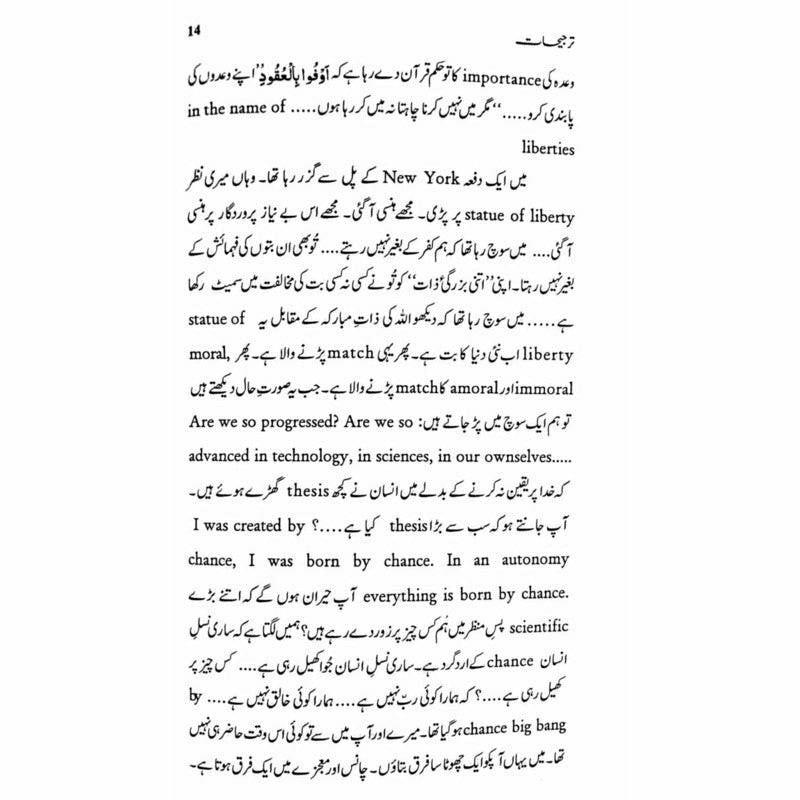 14 ترجیحات
وعدہ کی importance کا تو حکم قرآن دے رہا ہے کہ اَوْفُوا بِالْعُقُودِ ’’اپنے وعدوں کی
پابندی کرو.....‘‘ مگر میں نہیں کرنا چاہتا نہ میں کر رہا ہوں..... in the name of
liberties
میں ایک دفعہ New York کے پل سے گزر رہا تھا۔ وہاں میری نظر
statue of liberty پر پڑی۔ مجھے ہنسی آ گئی۔ مجھے اس بے نیاز پروردگار پر ہنسی
آ گئی.... میں سوچ رہا تھا کہ ہم کفر کے بغیر نہیں رہتے.... تُو بھی ان بتوں کی فہمائش کے
بغیر نہیں رہتا۔ اپنی ’’اتنی بزرگیٔ ذات‘‘ کو تُو نے کسی نہ کسی بت کی مخالفت میں سمیٹ رکھا
ہے..... میں سوچ رہا تھا کہ دیکھو اللہ کی ذاتِ مبارکہ کے مقابل یہ statue of
liberty اب نئی دنیا کا بت ہے۔ پھر یہی match پڑنے والا ہے۔ پھر moral,
immoral اور amoral کا match پڑنے والا ہے۔ جب یہ صورتِ حال دیکھتے ہیں
تو ہم ایک سوچ میں پڑ جاتے ہیں: Are we so progressed? Are we so
advanced in technology, in sciences, in our ownselves.....
کہ خدا پر یقین نہ کرنے کے بدلے میں انسان نے کچھ thesis گھڑے ہوئے ہیں۔
آپ جانتے ہو کہ سب سے بڑا thesis کیا ہے....؟ I was created by
chance, I was born by chance. In an autonomy
everything is born by chance. آپ حیران ہوں گے کہ اتنے بڑے
scientific پسِ منظر میں ہُم کس چیز پر زور دے رہے ہیں؟ ہمیں لگتا ہے کہ ساری نسلِ
انسان chance کے اردگرد ہے۔ ساری نسلِ انسان جُوا کھیل رہی ہے.... کس چیز پر
کھیل رہی ہے....؟ کہ ہمارا کوئی ربّ نہیں ہے.... ہمارا کوئی خالق نہیں ہے.... by
chance big bang ہو گیا تھا۔ میرے اور آپ میں سے تو کوئی اس وقت حاضر ہی نہیں
تھا۔ میں یہاں آپکو ایک چھوٹا سا فرق بتاؤں۔ چانس اور معجزے میں ایک فرق ہوتا ہے۔